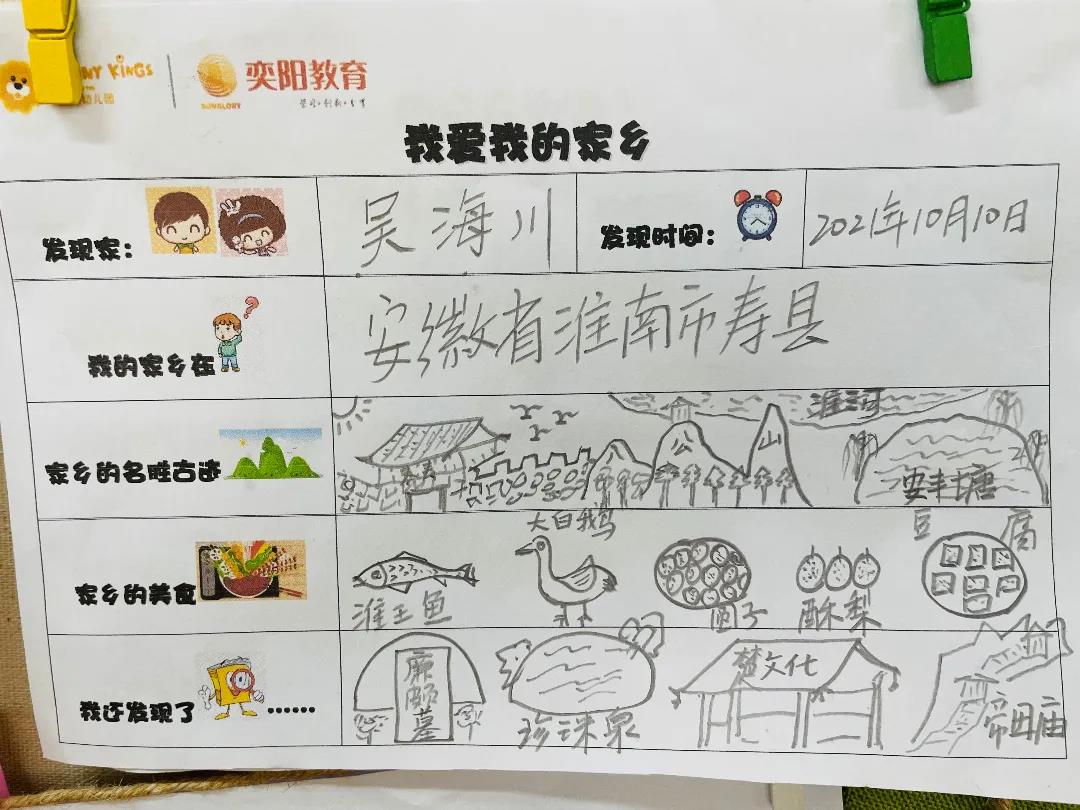 NY KINGS
幼儿园
SUNGLORY
奕阳教育
我爱我的家乡
发现家：
吴海川
发现时间：
2021年10月10日
我的家乡在
安徽省淮南市寿县
家乡的名胜古迹
公
山
淮河
安丰塘
家乡的美食
淮王鱼
大白鹅
圆子
酥梨
豆腐
我还发现了……
廉颇墓
珍珠泉
楚文化
帝母庙